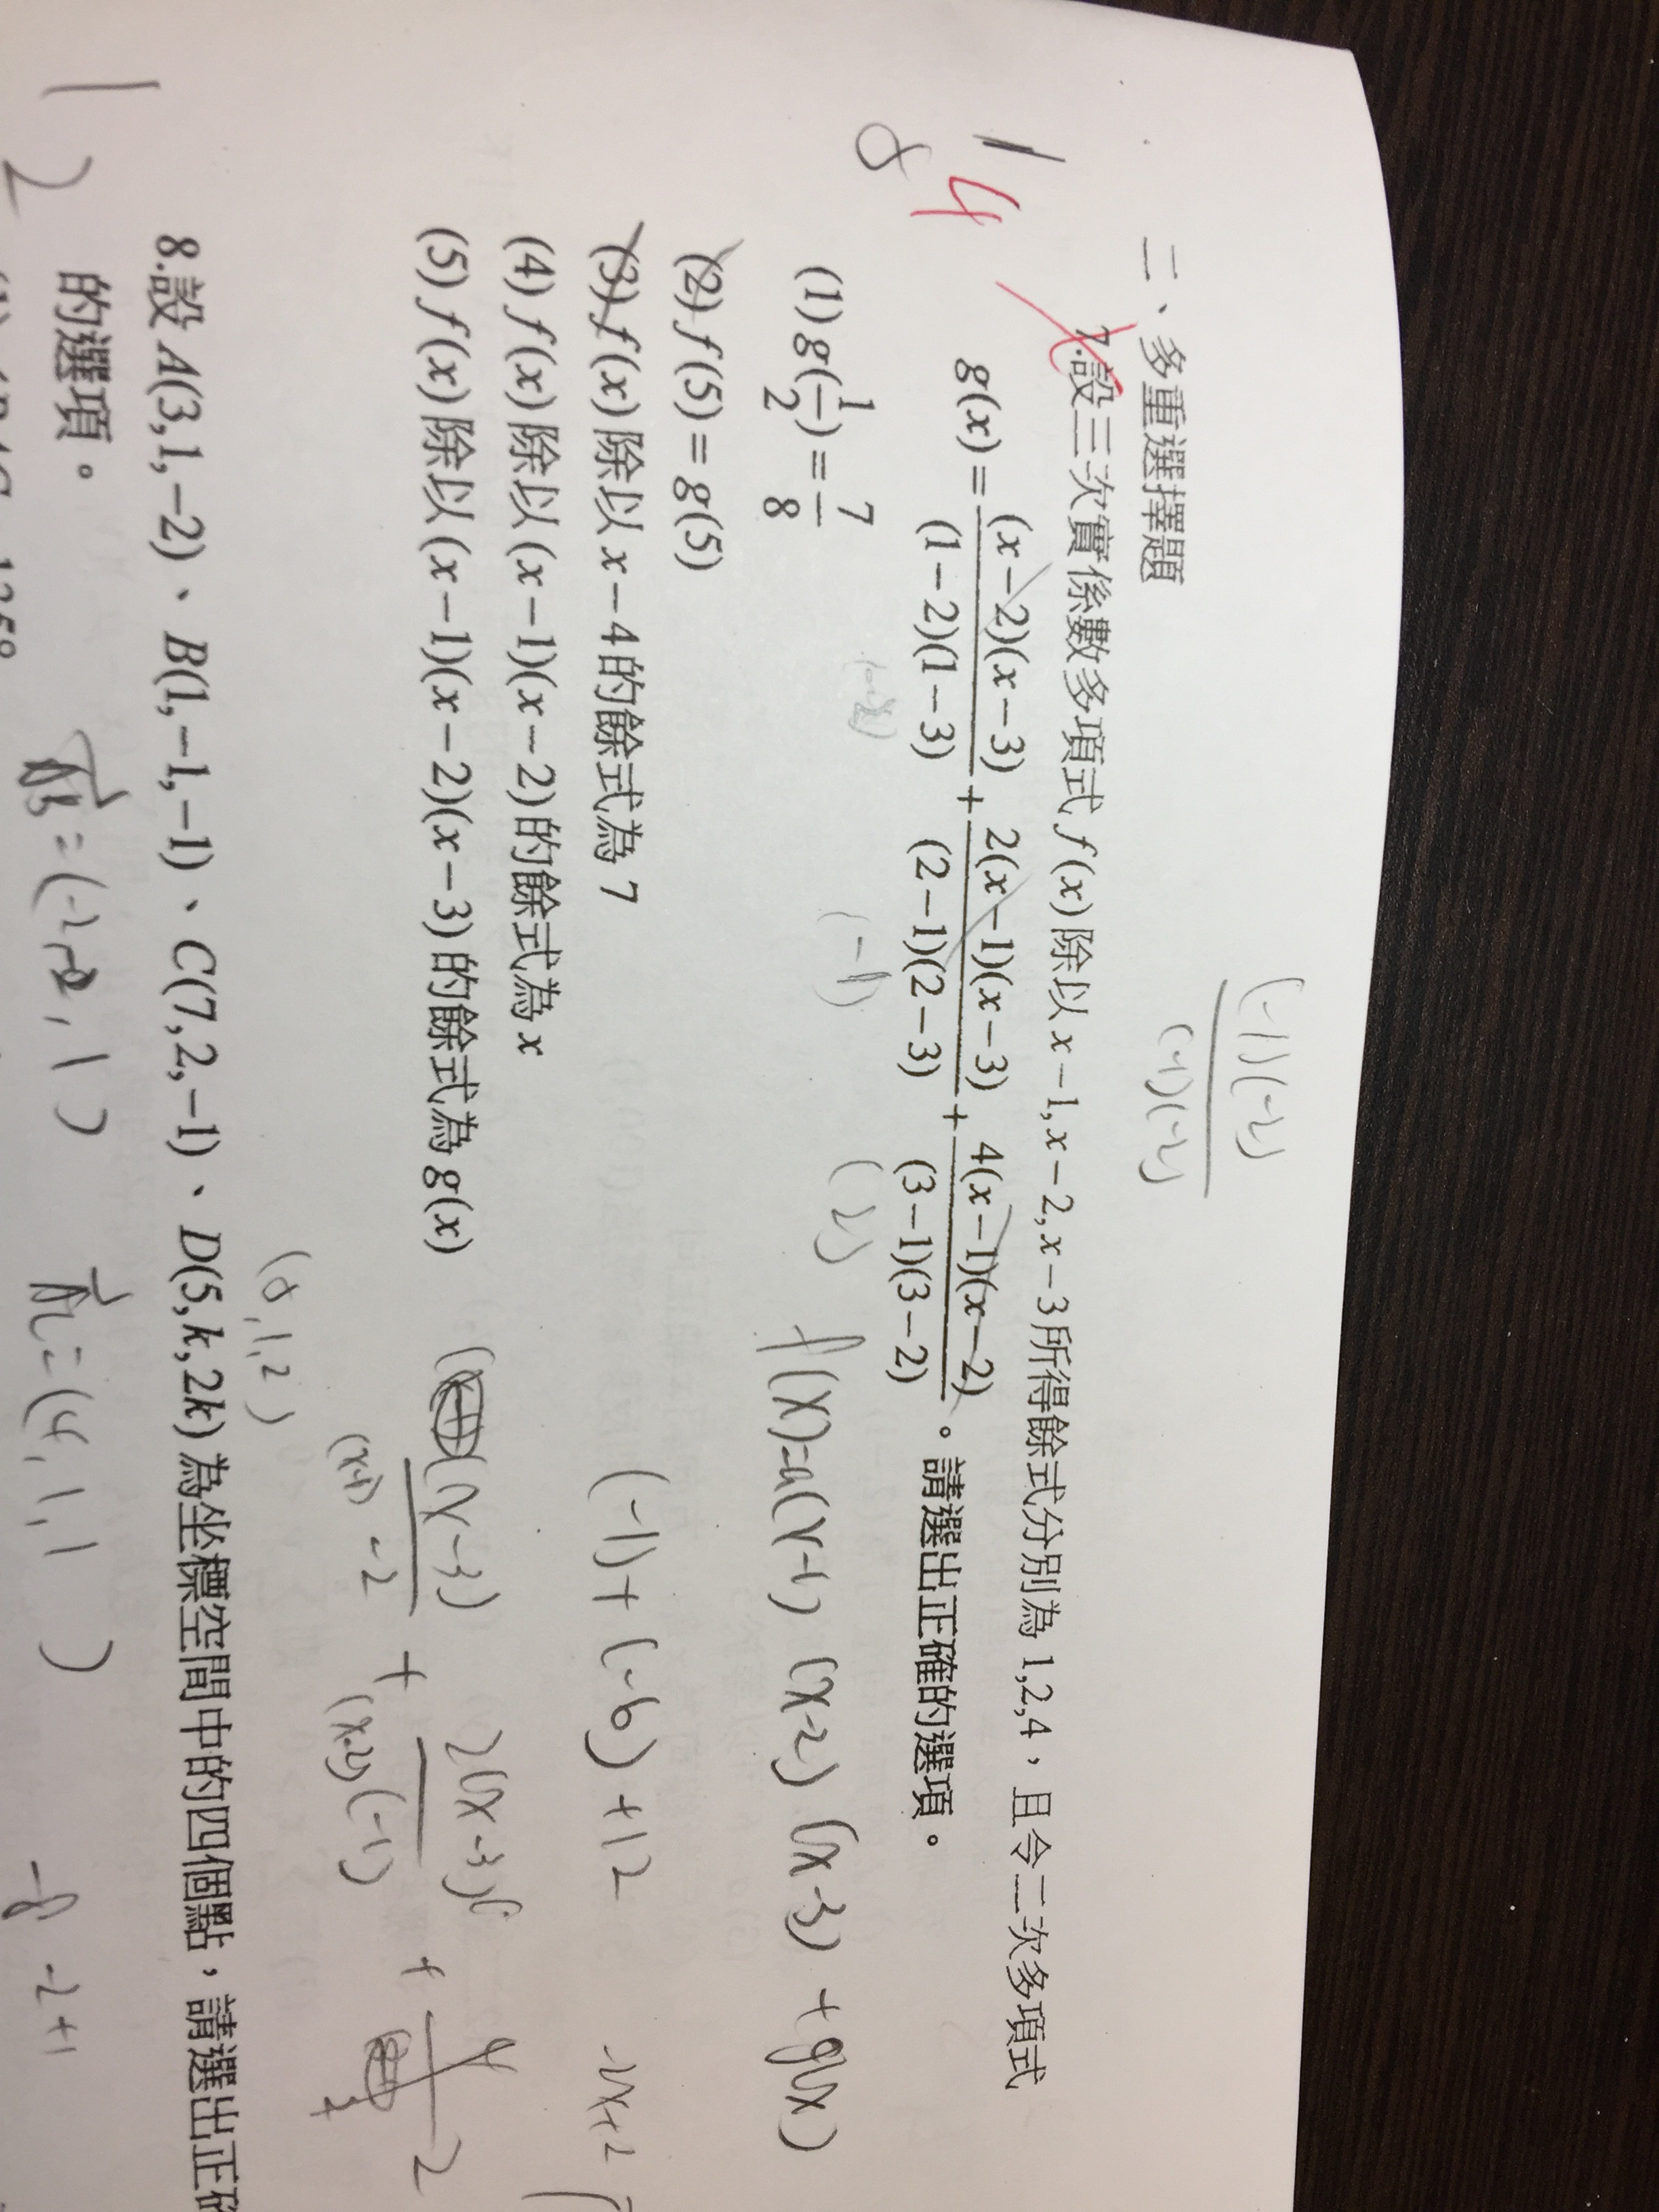 (-1)(-2)
(-1)(-2)
二、多重選擇題
1 4 7.設三次實係數多項式 f(x) 除以 x-1, x-2, x-3 所得餘式分別為 1,2,4，且令二次多項式
8 g(x) = (x-2)(x-3)/(1-2)(1-3) + 2(x-1)(x-3)/(2-1)(2-3) + 4(x-1)(x-2)/(3-1)(3-2)。請選出正確的選項。
(-1) (2)
(1) g(1/2) = 7/8
f(x)=a(x-1)(x-2)(x-3)+g(x)
(2) f(5) = g(5)
(3) f(x) 除以 x-4 的餘式為 7
(-1)+(-6)+12
-2x+2
(4) f(x) 除以 (x-1)(x-2) 的餘式為 x
(5) f(x) 除以 (x-1)(x-2)(x-3) 的餘式為 g(x)
(x-3)/(x-1) -2 + 2(x-3)/(x-2)(-1) +
(8,1,2)
1 2 8.設 A(3,1,-2)、B(1,-1,-1)、C(7,2,-1)、D(5,k,2k) 為坐標空間中的四個點，請選出正確
的選項。
AB=(-2,-2,1) AC=(4,1,1) -8-2+1